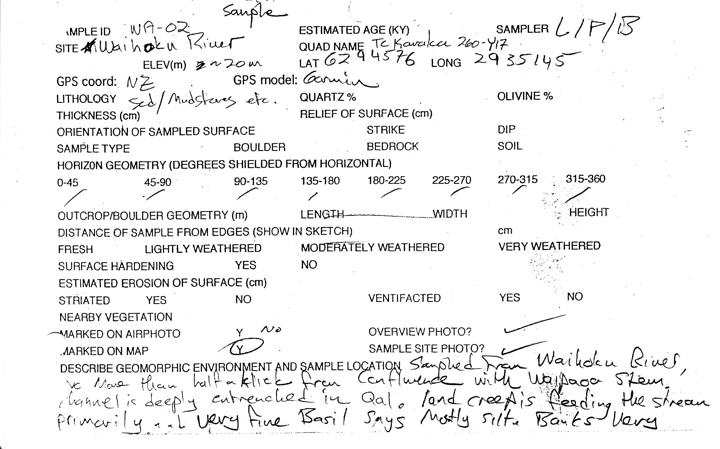 Sample
MPLE ID WA-02 ESTIMATED AGE (KY) SAMPLER L/P/B
SITE Waihoku River QUAD NAME Te Karaka 260-Y17
ELEV(m) ~20m LAT 6294576 LONG 2935145
GPS coord: NZ GPS model: Garmin
LITHOLOGY Sed/Mudstones etc. QUARTZ % OLIVINE %
THICKNESS (cm) RELIEF OF SURFACE (cm)
ORIENTATION OF SAMPLED SURFACE STRIKE DIP
SAMPLE TYPE BOULDER BEDROCK SOIL
HORIZON GEOMETRY (DEGREES SHIELDED FROM HORIZONTAL)
0-45 45-90 90-135 135-180 180-225 225-270 270-315 315-360
OUTCROP/BOULDER GEOMETRY (m) LENGTH WIDTH HEIGHT
DISTANCE OF SAMPLE FROM EDGES (SHOW IN SKETCH) cm
FRESH LIGHTLY WEATHERED MODERATELY WEATHERED VERY WEATHERED
SURFACE HARDENING YES NO
ESTIMATED EROSION OF SURFACE (cm)
STRIATED YES NO VENTIFACTED YES NO
NEARBY VEGETATION
MARKED ON AIRPHOTO Y No OVERVIEW PHOTO?
MARKED ON MAP Y SAMPLE SITE PHOTO?
DESCRIBE GEOMORPHIC ENVIRONMENT AND SAMPLE LOCATION Sampled from Waihoku River,
More than half a klick from Confluence with Waipaoa Stem,
channel is deeply entrenched in Qal. land creep is feeding the stream
primarily Very fine Basil says Mostly silt. Banks Very